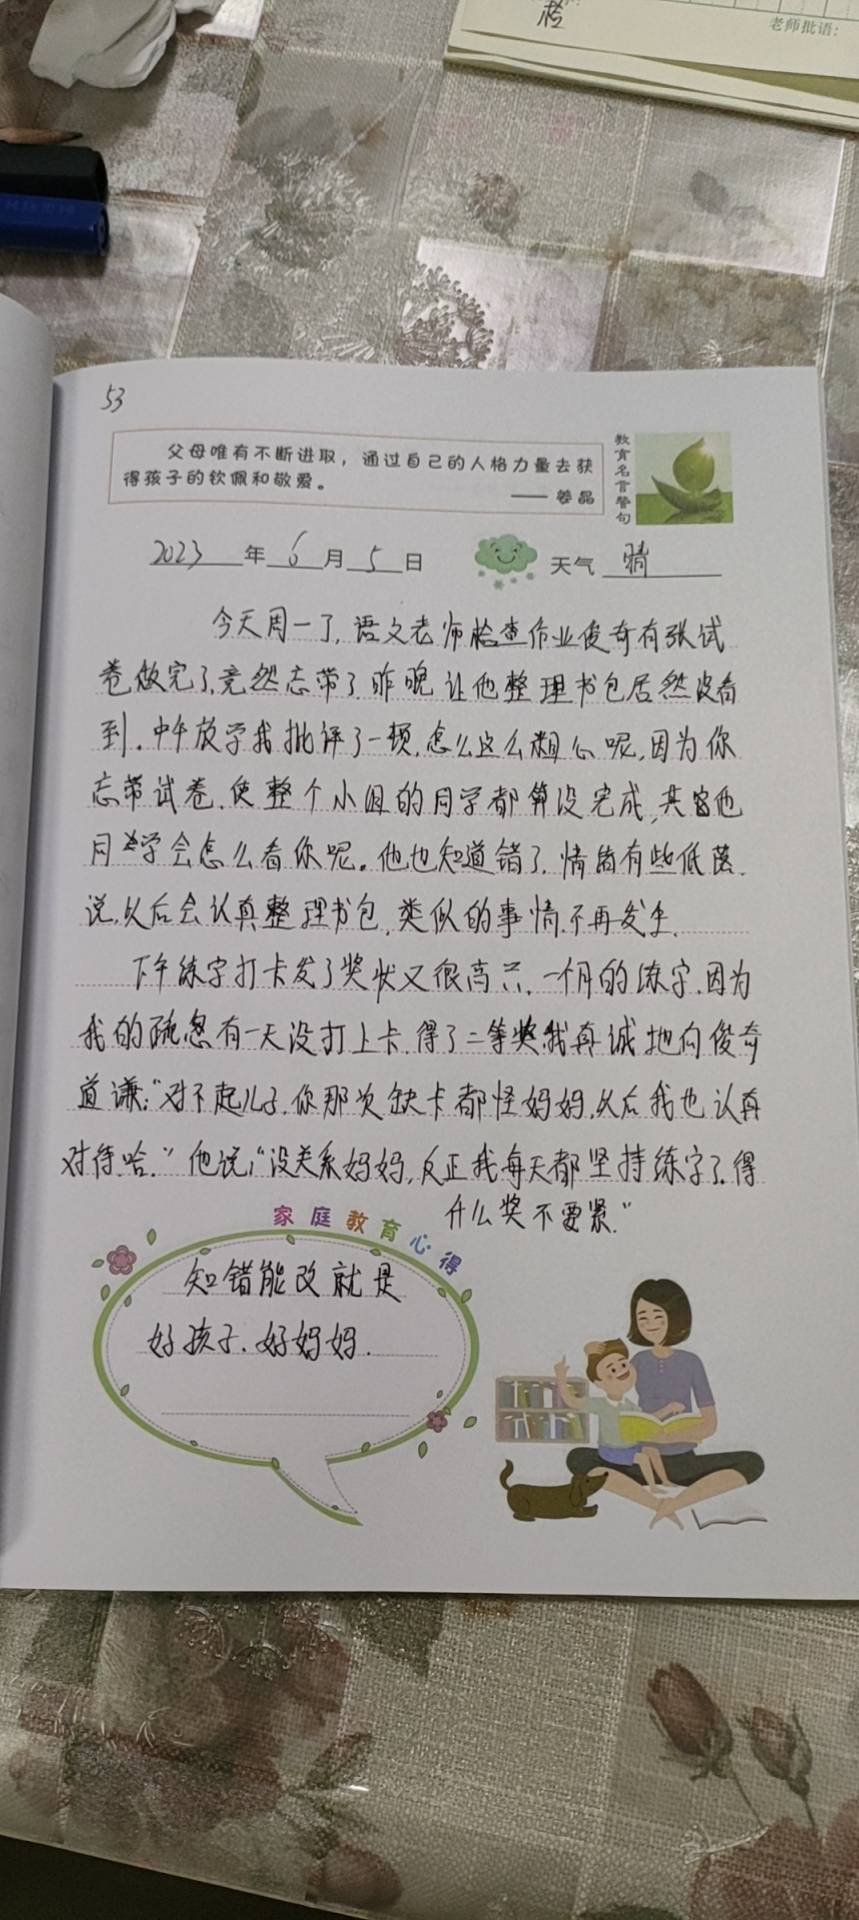 老师批语:
53
父母唯有不断进取，通过自己的人格力量去获
得孩子的钦佩和敬爱。
—— 晏品
教育名言警句
2023年6月5日 天气 晴
今天周一了,语文老师检查作业俊奇有张试
卷做完了,竟然忘带了.昨晚让他整理书包居然没看
到.中午放学我批评了一顿,怎么这么粗心呢,因为你
忘带试卷.使整个小组的同学都算没完成,其他
同学会怎么看你呢。他也知道错了.情绪有些低落.
说,以后会认真整理书包,类似的事情.不再发生.
下午练字打卡发了奖状又很高兴.一个月的练字.因为
我的疏忽有一天没打上卡.得了二等奖.我真诚地向俊奇
道谦:“对不起儿子.你那次缺卡都怪妈妈,以后我也认真
对待哈.”他说,“没关系妈妈,反正我每天都坚持练字了.得
什么奖不要紧.”
家庭教育心得
知错能改就是
好孩子.好妈妈.